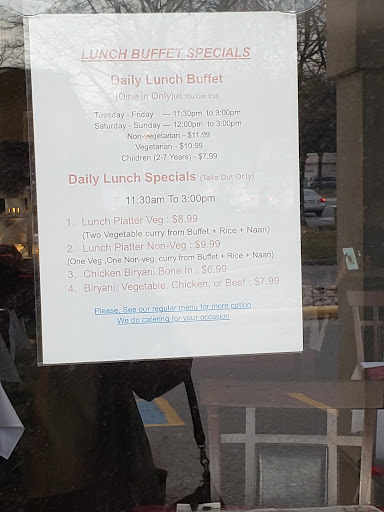 LUNCH BUFFET SPECIALS
Daily Lunch Buffet
(Dine in Only)(All You Can Eat)
Tuesday - Friday — 11:30pm to 3:00pm
Saturday - Sunday — 12:00pm to 3:00pm
Non-vegetarian - $11.99
Vegetarian - $10.99
Children (2-7 Years) - $7.99
Daily Lunch Specials (Take Out Only)
11:30am To 3:00pm
1. Lunch Platter Veg : $8.99
(Two Vegetable curry from Buffet + Rice + Naan)
2. Lunch Platter Non-Veg : $9.99
(One Veg ,One Non-veg curry from Buffet + Rice + Naan)
3. Chicken Biryani Bone In : $6.99
4. Biryani: Vegetable, Chicken, or Beef : $7.99
Please, See our regular menu for more option
We do catering for your occasion